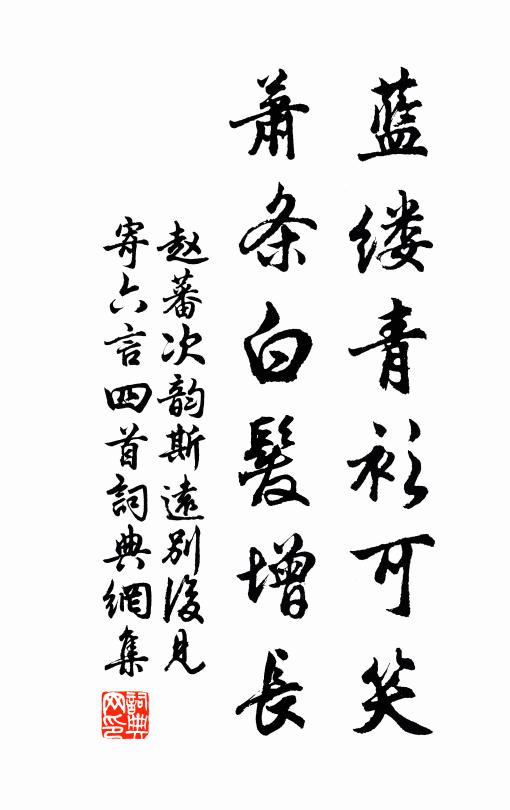 藍缕青衫可笑
蕭条白髮增長
赵蕃次韵斯遠别後見
寄六言四首詞典網集
詞典网印